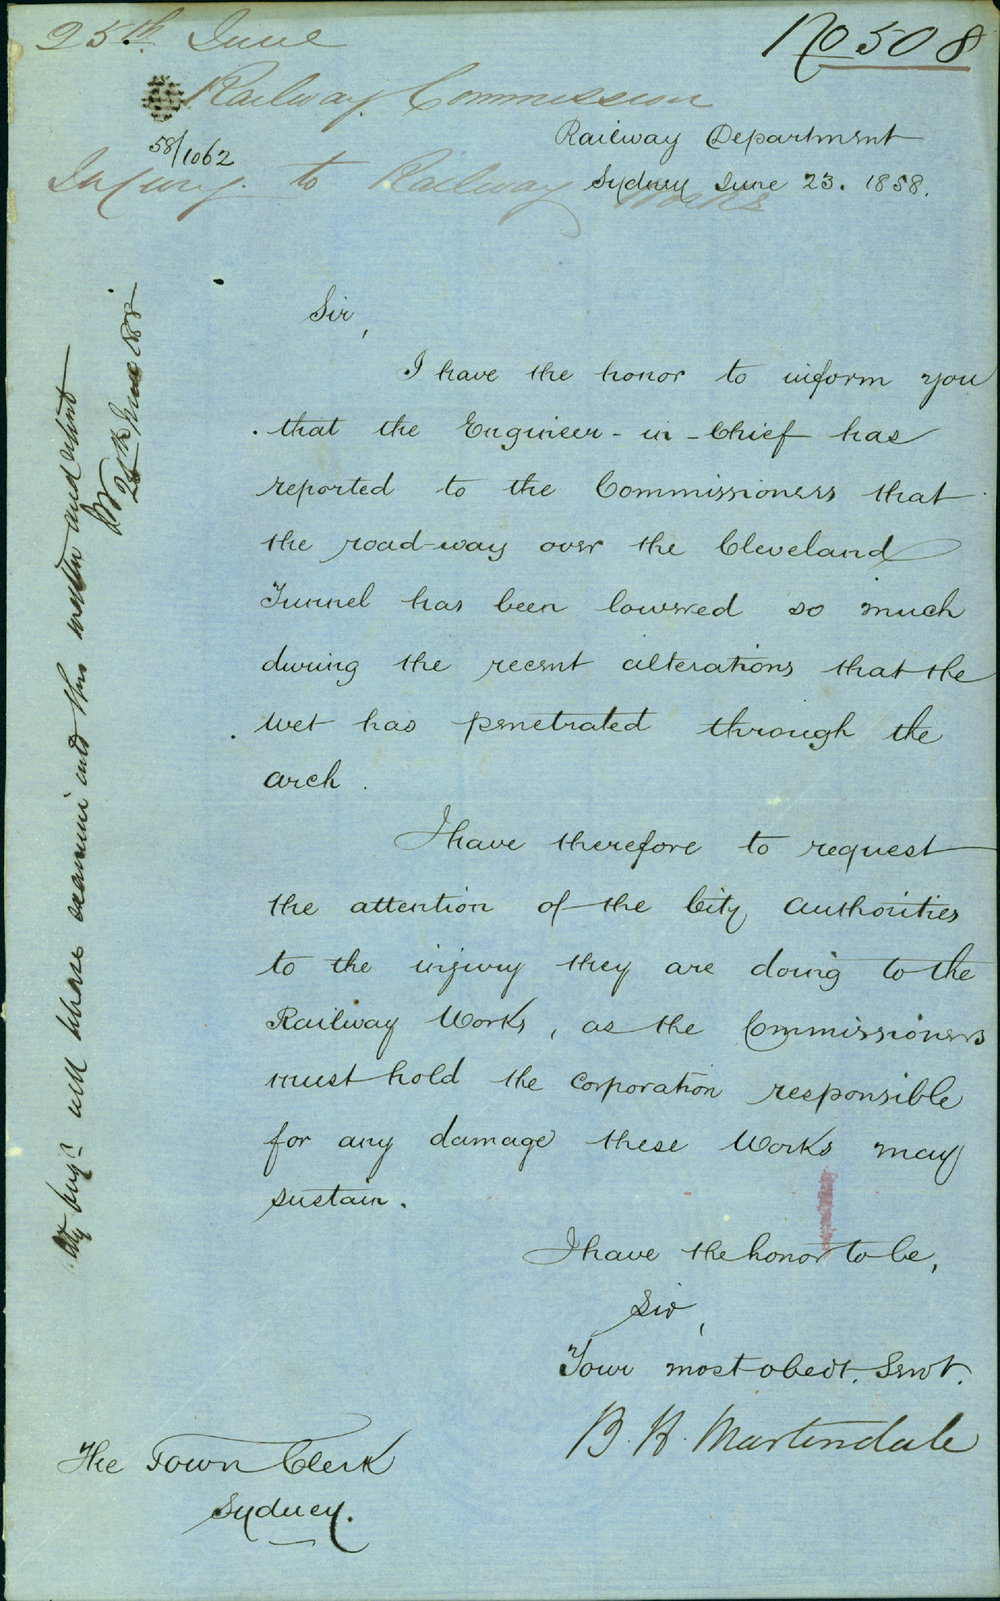 25th June
No 508
Railway Commission
58/1062
Railway Department
Injury to Railway Works
Sydney June 23. 1858.
Sir,
I have the honor to inform you
that the Engineer-in-Chief has
reported to the Commissioners that
the road-way over the Cleveland
Tunnel has been lowered so much
during the recent alterations that the
wet has penetrated through the
arch.
I have therefore to request
the attention of the City Authorities
to the injury they are doing to the
Railway Works, as the Commissioners
must hold the Corporation responsible
for any damage these Works may
sustain.
I have the honor to be,
Sir,
Your most obedt. Servt.
B. H. Martindale
The Town Clerk
Sydney.
City Engr will please examine into this matter and report
25th June 1858